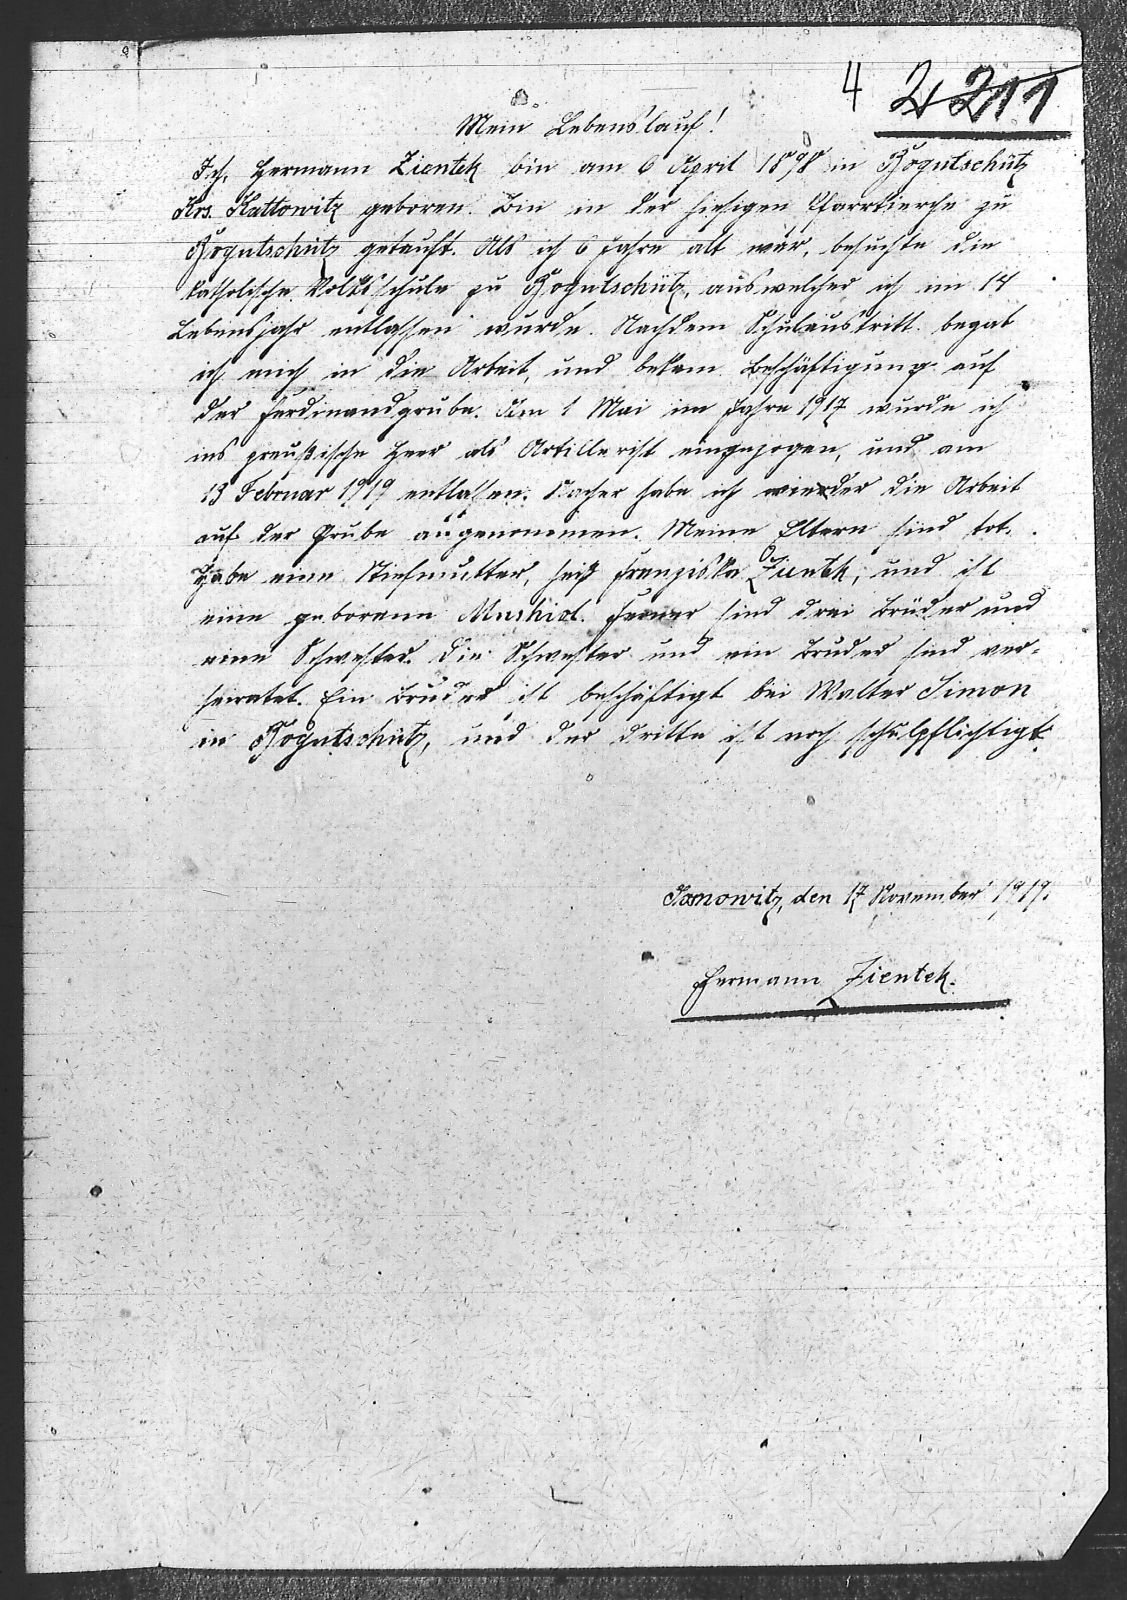 4 211
Mein Lebenslauf!
Ich, Hermann Zientek bin am 6 April 1898 in Bogutschütz
Krs. Kattowitz geboren. Bin in der hiesigen Pfarrkierche zu
Bogutschütz getauft. Als ich 6 Jahre alt war, besuchte die
katholische Volksschule zu Bogutschütz, aus welcher ich im 14
Lebensjahr entlassen wurde. Nachdem Schulaustritt begab
ich mich in die Arbeit, und bekam Beschäftigung auf
der Ferdinandgrube. Am 1 Mai im Jahre 1917 wurde ich
ins preußische Heer als Artillerist eingezogen, und am
13 Februar 1919 entlassen. Nacher habe ich wierder die Arbeit
auf der Grube aufgenommen. Meine Eltern sind tot.
Habe eine Stiefmutter, heist Franziska Zientek, und ist
eine geborene Mushiol. Ferner sind drei Brüder und
eine Schwester. Die Schwester und ein Bruder sind ver-
heiratet. Ein Bruder ist beschäftigt bei Walter Simon
in Bogutschütz, und der dritte ist noch schulpflichtigt.
den 17 November 1919.
Hermann Zientek.